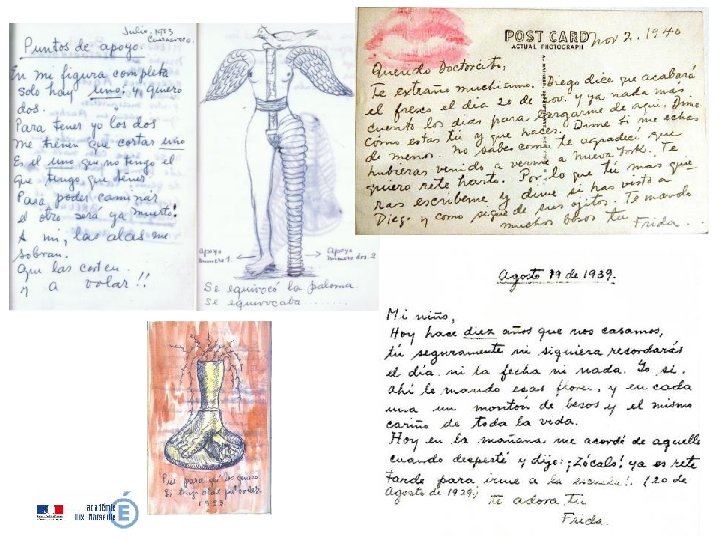 Julio. 1953
Cuernavaca.
Puntos de apoyo
En mi figura completa
solo hay uno; y quiero
dos.
Para tener yo los dos
me tienen que cortar uno
Es el uno que no tengo el
que tengo que tener
Para poder caminar
el otro será ya muerto!
A mi, las alas me
sobran.
Que las corten
y a volar!!
apoyo
numero 1
Apoyo
numero dos. 2
Se equivocó la paloma
Se equivocaba........
POST CARD
ACTUAL PHOTOGRAPH
Nov 2. 1940
Querido Doctorcito,
Te extraño muchísimo. Diego dice que acabará
el fresco el día 20 de Nov. y ya nada más
cuento los días para largarme de aquí. Dime
como estas tú y que haces. Dime si me echas
de menos. No sabes como te agradecí que
hubieras venido a verme a Nueva York. Te
quiero rete harto. Por lo que tú mas quie
ras escribeme y dime si has visto a
Diego y como sigue de sus ojitos. Te mando
muchos besos tu
Frida
Agosto 19 de 1939.
Mi niño,
Hoy hace diez años que nos casamos,
tú seguramente ni siquiera recordarás
el día ni la fecha ni nada. Yo sí.
Ahí te mando esas flores, y en cada
una un montón de besos y el mismo
cariño de toda la vida.
Hoy en la mañana me acordé de aquello
cuando desperté y dije: ¡Zócalo! ya es rete
tarde para irme a la escuela!. (20 de
Agosto de 1929)
te adora tu
Frida.
Pies para qué los quiero
Si tengo alas pa' volar.
1953.
académie
Aix Marseille